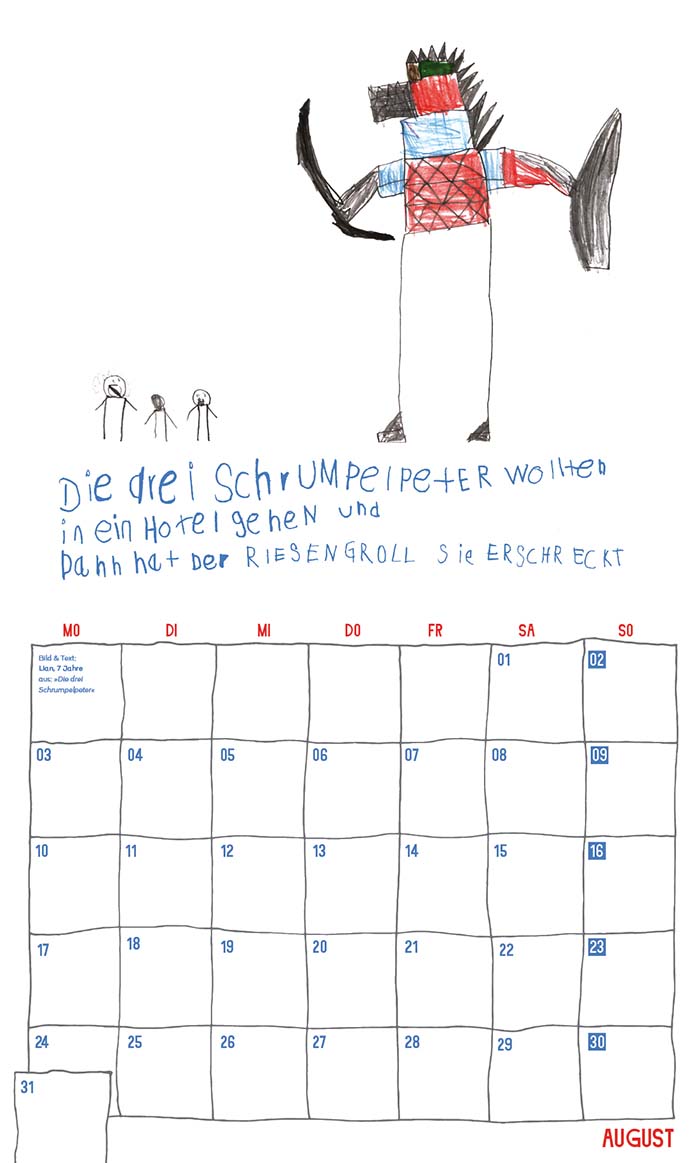 Die drei SchrUMPelPeTER wollten
in ein HoTel geheN und
Dann hat Der RIESENGROLL Sie ERSCHRECKT
MO DI MI DO FR SA SO
Bild & Text:
Lian, 7 Jahre
aus: »Die drei
Schrumpelpeter«
01 02
03 04 05 06 07 08 09
10 11 12 13 14 15 16
17 18 19 20 21 22 23
24 25 26 27 28 29 30
31
AUGUST